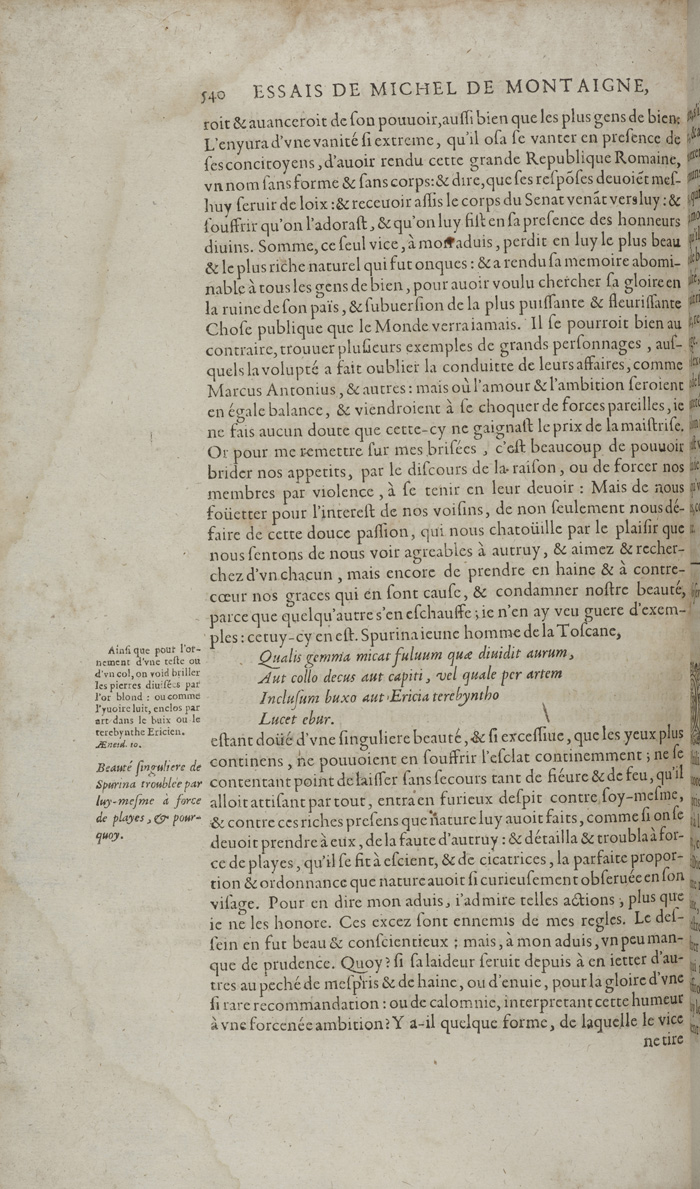 540 ESSAIS DE MICHEL DE MONTAIGNE,
roit & auanceroit de ſon pouuoir, auſſi bien que les plus gens de bien:
L'enyura d'vne vanité ſi extreme, qu'il oſa ſe vanter en preſence de
ſes concitoyens, d'auoir rendu cette grande Republique Romaine,
vn nom ſans forme & ſans corps: & dire, que ſes reſpõſes deuoiẽt meſ-
huy ſeruir de loix: & receuoir aſſis le corps du Senat venãt vers luy: &
ſouffrir qu'on l'adoraſt, & qu'on luy fiſt en ſa preſence des honneurs
diuins. Somme, ce ſeul vice, à mon aduis, perdit en luy le plus beau
& le plus riche naturel qui fut onques: & a rendu ſa memoire abomi-
nable à tous les gens de bien, pour auoir voulu chercher ſa gloire en
la ruine de ſon païs, & ſubuerſion de la plus puiſſante & fleuriſſante
Choſe publique que le Monde verra iamais. Il ſe pourroit bien au
contraire, trouuer pluſieurs exemples de grands perſonnages, auſ-
quels la volupté a fait oublier la conduitte de leurs affaires, comme
Marcus Antonius, & autres: mais où l'amour & l'ambition ſeroient
en égale balance, & viendroient à ſe choquer de forces pareilles, ie
ne fais aucun doute que cette-cy ne gaignaſt le prix de la maiſtriſe.
Or pour me remettre ſur mes briſées, c'eſt beaucoup de pouuoir
brider nos appetits, par le diſcours de la raiſon, ou de forcer nos
membres par violence, à ſe tenir en leur deuoir: Mais de nous
foüetter pour l'intereſt de nos voiſins, de non ſeulement nous dé-
faire de cette douce paſſion, qui nous chatoüille par le plaiſir que
nous ſentons de nous voir agreables à autruy, & aimez & recher-
chez d'vn chacun, mais encore de prendre en haine & à contre-
cœur nos graces qui en ſont cauſe, & condamner noſtre beauté,
parce que quelqu'autre s'en eſchauffe; ie n'en ay veu guere d'exem-
ples: cetuy-cy en eſt. Spurina ieune homme de la Toſcane,
Qualis gemma micat fuluum quæ diuidit aurum,
Aut collo decus aut capiti, vel quale per artem
Incluſum buxo aut Ericia terebyntho
Lucet ebur.
Ainſi que pour l'or-
nement d'vne teſte ou
d'vn col, on void briller
les pierres diuiſées par
l'or blond: ou comme
l'yuoire luit, enclos par
art dans le buix ou le
terebynthe Ericien.
Æneid. 10.
eſtant doüé d'vne ſinguliere beauté, & ſi exceſſiue, que les yeux plus
continens, ne pouuoient en ſouffrir l'eſclat continemment; ne ſe
contentant point de laiſſer ſans ſecours tant de fiéure & de feu, qu'il
alloit attiſant par tout, entra en furieux deſpit contre ſoy-meſme,
& contre ces riches preſens que nature luy auoit faits, comme ſi on ſe
deuoit prendre à eux, de la faute d'autruy: & détailla & troubla à for-
ce de playes, qu'il ſe fit à eſcient, & de cicatrices, la parfaite propor-
tion & ordonnance que nature auoit ſi curieuſement obſeruée en ſon
viſage. Pour en dire mon aduis, i'admire telles actions, plus que
ie ne les honore. Ces excez ſont ennemis de mes regles. Le deſ-
ſein en fut beau & conſcientieux: mais, à mon aduis, vn peu man-
que de prudence. Quoy? ſi ſa laideur ſeruit depuis à en ietter d'au-
tres au peché de meſpris & de haine, ou d'enuie, pour la gloire d'vne
ſi rare recommandation: ou de calomnie, interpretant cette humeur
à vne forcenée ambition? Y a-il quelque forme, de laquelle le vice
ne tire
Beauté ſinguliere de
Spurina troublée par
luy-meſme à force
de playes, & pour-
quoy.